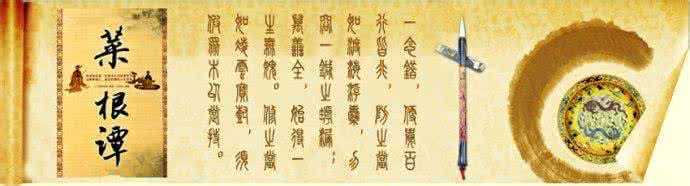 菜根谭
一念錯，便覺百
行皆非，防之當
如渡海浮囊，勿
容一鍼之罅漏；
萬善全，始得一
生無愧。修之當
如凌雲寶樹，須
假眾木以撐持。